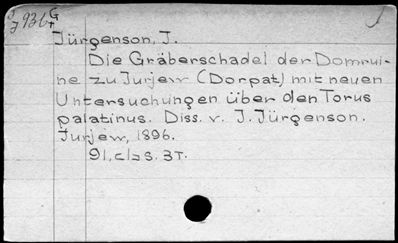 G
7936
Jürgenson, J.
Die Gräberschadel der Domrui-
ne zu Jurjew (Dorpat) mit neuen
Untersuchungen über den Torus
palatinus. Diss. v. J. Jürgenson.
Jurjew, 1896.
91, c/s s. 3T.